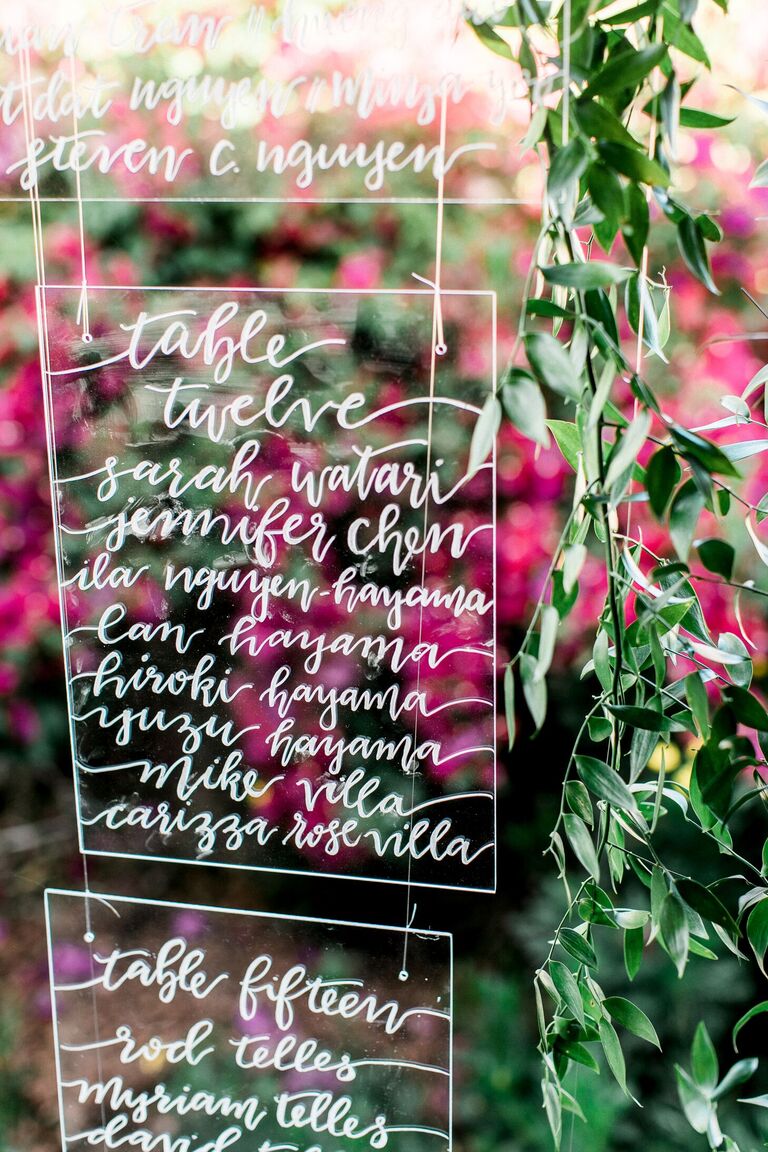 tran // huong
dat nguyen // minza
steven c. nguyen
table
twelve
sarah watari
jennifer chen
ila nguyen-hayama
lan hayama
hiroki hayama
yuzu hayama
mike villa
carizza rose villa
table fifteen
rod telles
myriam telles
david